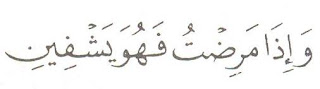 وَإِذَا مَرِضْتُ فَهُوَ يَشْفِينِ